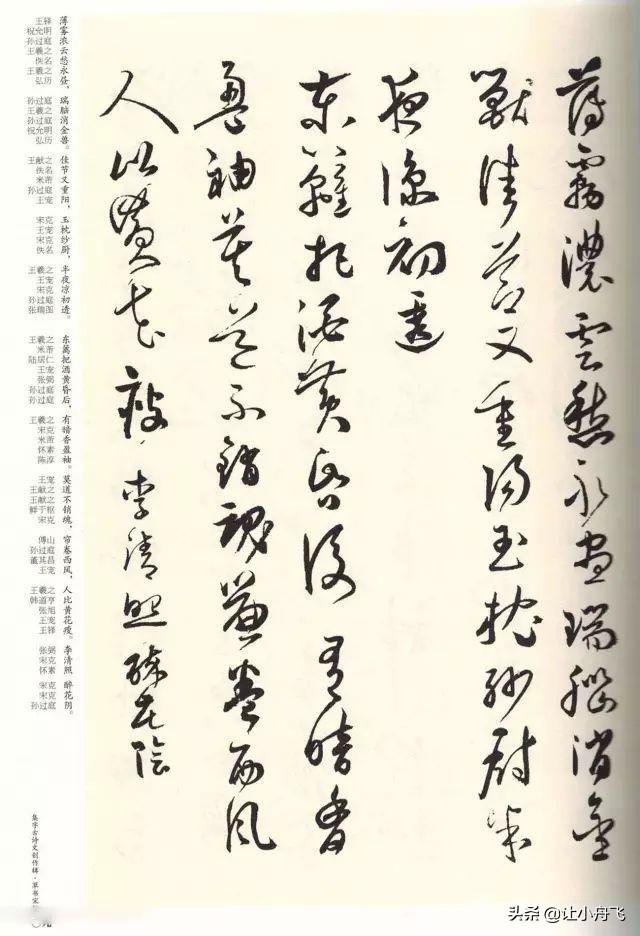 薄霧濃雲愁永晝瑞腦消金
獸佳節又重陽玉枕紗厨半
夜涼初透
東籬把酒黃昏後有暗香
盈袖莫道不銷魂簾卷西風
人比黃花瘦 李清照 醉花陰
王铎 薄
祝允明 雾
孙过庭 浓
王羲之 云
佚名 愁
王羲之 永
弘历 昼，
孙过庭 瑞
王羲之 脑
孙过庭 消
祝允明 金
弘历 兽。
王献之 佳
佚名 节
米芾 又
孙过庭 重
王宠 阳，
宋克 玉
王宠 枕
宋克 纱
佚名 厨，
王羲之 半
王宠 夜
宋克 凉
孙过庭 初
张瑞图 透。
王羲之 东
米芾 篱
陆居仁 把
王宠 酒
张弼 黄
孙过庭 昏
孙过庭 后，
王羲之 有
宋克 暗
米芾 香
怀素 盈
陈淳 袖。
王宠 莫
王献之 道
王献之 不
鲜于枢 销
宋克 魂，
傅山 帘
孙过庭 卷
董其昌 西
王宠 风，
王羲之 人
韩道亨 比
张旭 黄
王宠 花
王铎 瘦。
张弼 李
宋克 清
怀素 照
宋克 醉
宋克 花
孙过庭 阴。
集字古诗文创作辑·草书宋
头条 @让小舟飞